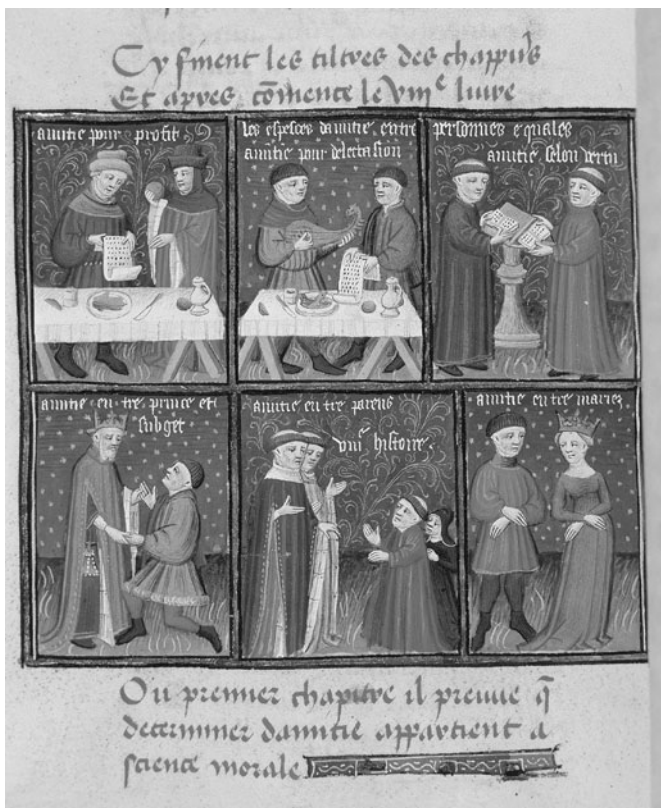 Cy finent les tiltres des chappitres
Et apres cōmence le VIIIᵉ livre
amitie pour profit
les especes damitie entre
amitie pour delectasion
personnes equales
amitie selon vertu
amitie entre prince et
subget
amitie entre parens
VIIIᵉ histoire.
amitie entre mariez
Ou premier chapitre il preuve q̄
determiner damitie appartient a
science morale